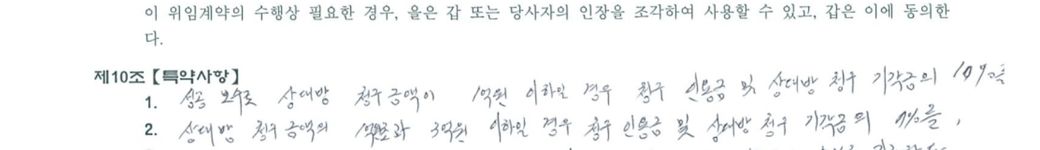 이 위임계약의 수행상 필요한 경우, 을은 갑 또는 당사자의 인장을 조각하여 사용할 수 있고, 갑은 이에 동의한
다.
제10조【특약사항】
1. 성공 보수로 상대방 청구금액이 1억원 이하일 경우 청구 인용금 및 상대방 청구 기각금의 10%를
2. 상대방 청구금액의 1억초과 3억원 이하일 경우 청구 인용금 및 상대방 청구 기각금의 9%를,